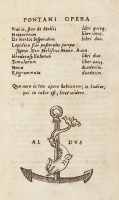 PONTANI OPERA
Vraniæ, siue de Stellis libri quinq;
Meteororum liber unus.
De Hortis hesperidum libri duo.
Lepidina siue pastorales pompæ
septem. Item Melisæus Mæon. Acon.
Hendecasyllaborum libri duo.
Tumulorum liber unus.
Neniæ duodecim.
Epigrammata duodecim.
Quæ uero in toto opere habeantur, in Indice,
qui in calce est, licet uidere.
AL DVS